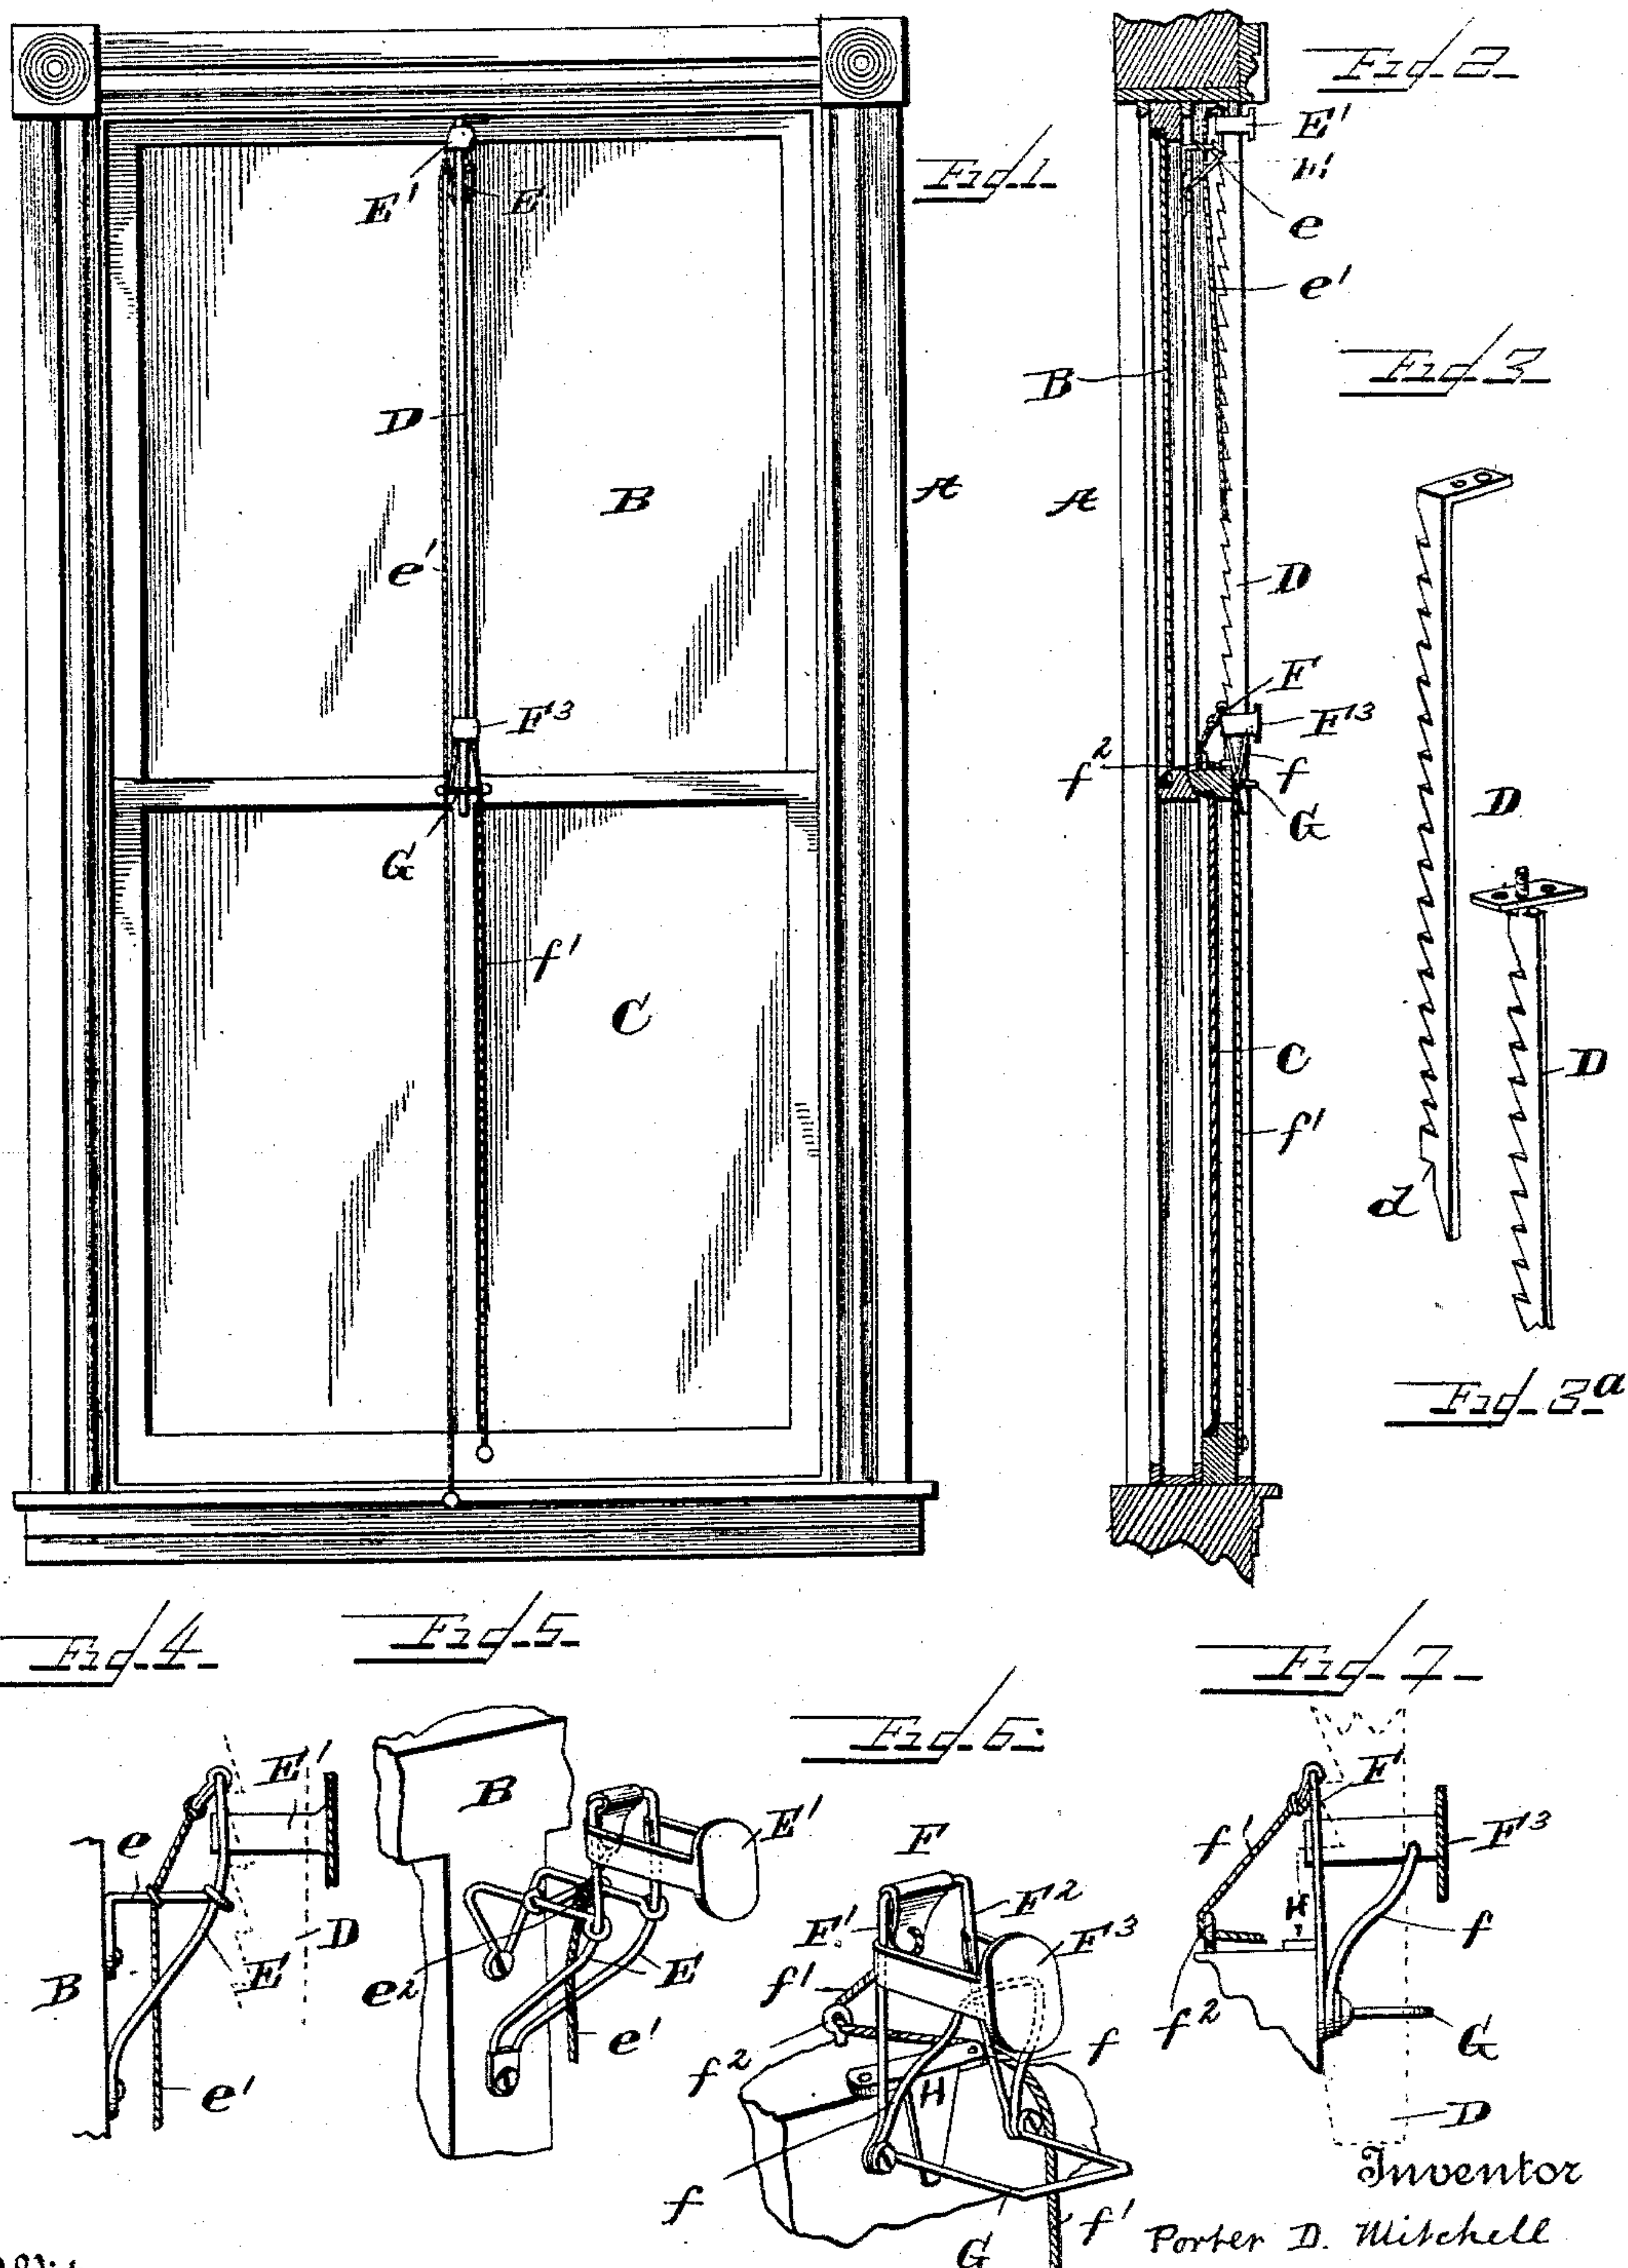 Fig. 1
E'
E
D
B
A
e'
F³
G
f'
C
Fig. 2
E'
E
e
e'
B
A
D
F
F³
f²
f
G
C
f'
Fig. 3
D
d
D
Fig. 3ᵃ
Fig. 4
E'
e
D
B
E
e'
Fig. 5
B
E'
E
e²
e'
Fig. 6
F
F'
F²
F³
f'
f²
f
H
f
G
f'
Fig. 7
F'
f'
F³
H
f
f²
G
D
Inventor
Porter D. Mitchell